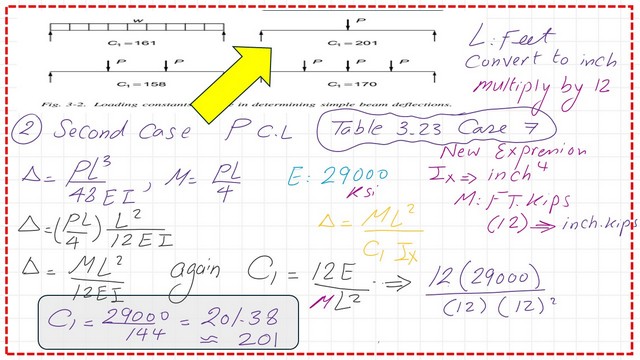 w
P
C₁=161
C₁=201
P P
P P P
C₁=158
C₁=170
Fig. 3-2. Loading constants in determining simple beam deflections.
L: Feet
Convert to inch
multiply by 12
2 Second Case P C.L Table 3.23 Case 7
Δ = PL³/48EI, M = PL/4
E: 29000
Ksi
New Expression
Ix ⇒ inch⁴
M: FT.Kips
(12) ⇒ inch.kips
Δ = (PL/4) L²/12EI
Δ = ML²/C₁ Ix
Δ = ML²/12EI again C₁ = 12E/ML² ⇒ 12(29000)/(12)(12)²
C₁ = 29000/144 = 201.38
≈ 201